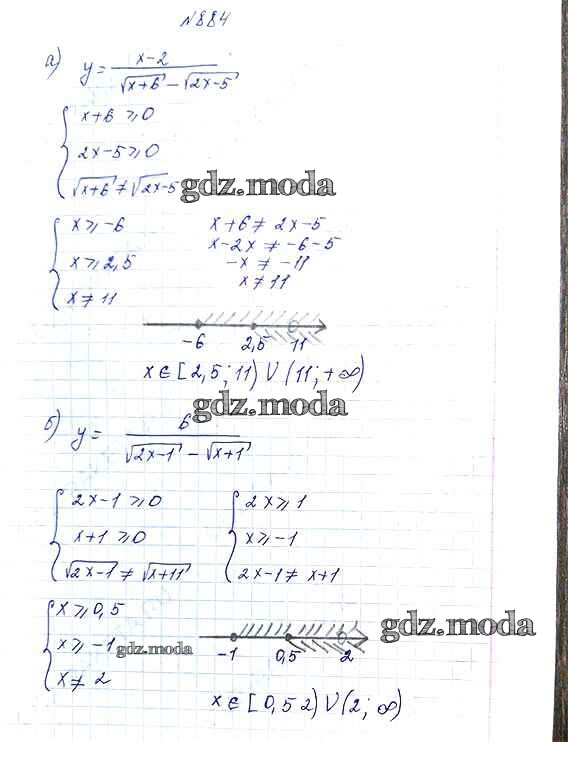 N884
а) y = (x-2)/(√(x+6) - √(2x-5))
{ x+6 ⩾ 0
2x-5 ⩾ 0
√(x+6) ≠ √(2x-5)
gdz.moda
{ x ⩾ -6
x ⩾ 2,5
x ≠ 11
x+6 ≠ 2x-5
x-2x ≠ -6-5
-x ≠ -11
x ≠ 11
-6 2,5 11
x ∈ [2,5; 11) ∪ (11; +∞)
gdz.moda
б) y = 6/(√(2x-1) - √(x+1))
{ 2x-1 ⩾ 0
x+1 ⩾ 0
√(2x-1) ≠ √(x+1)
{ 2x ⩾ 1
x ⩾ -1
2x-1 ≠ x+1
{ x ⩾ 0,5
x ⩾ -1
x ≠ 2
gdz.moda
gdz.moda
-1 0,5 2
x ∈ [0,5 2) ∪ (2; ∞)